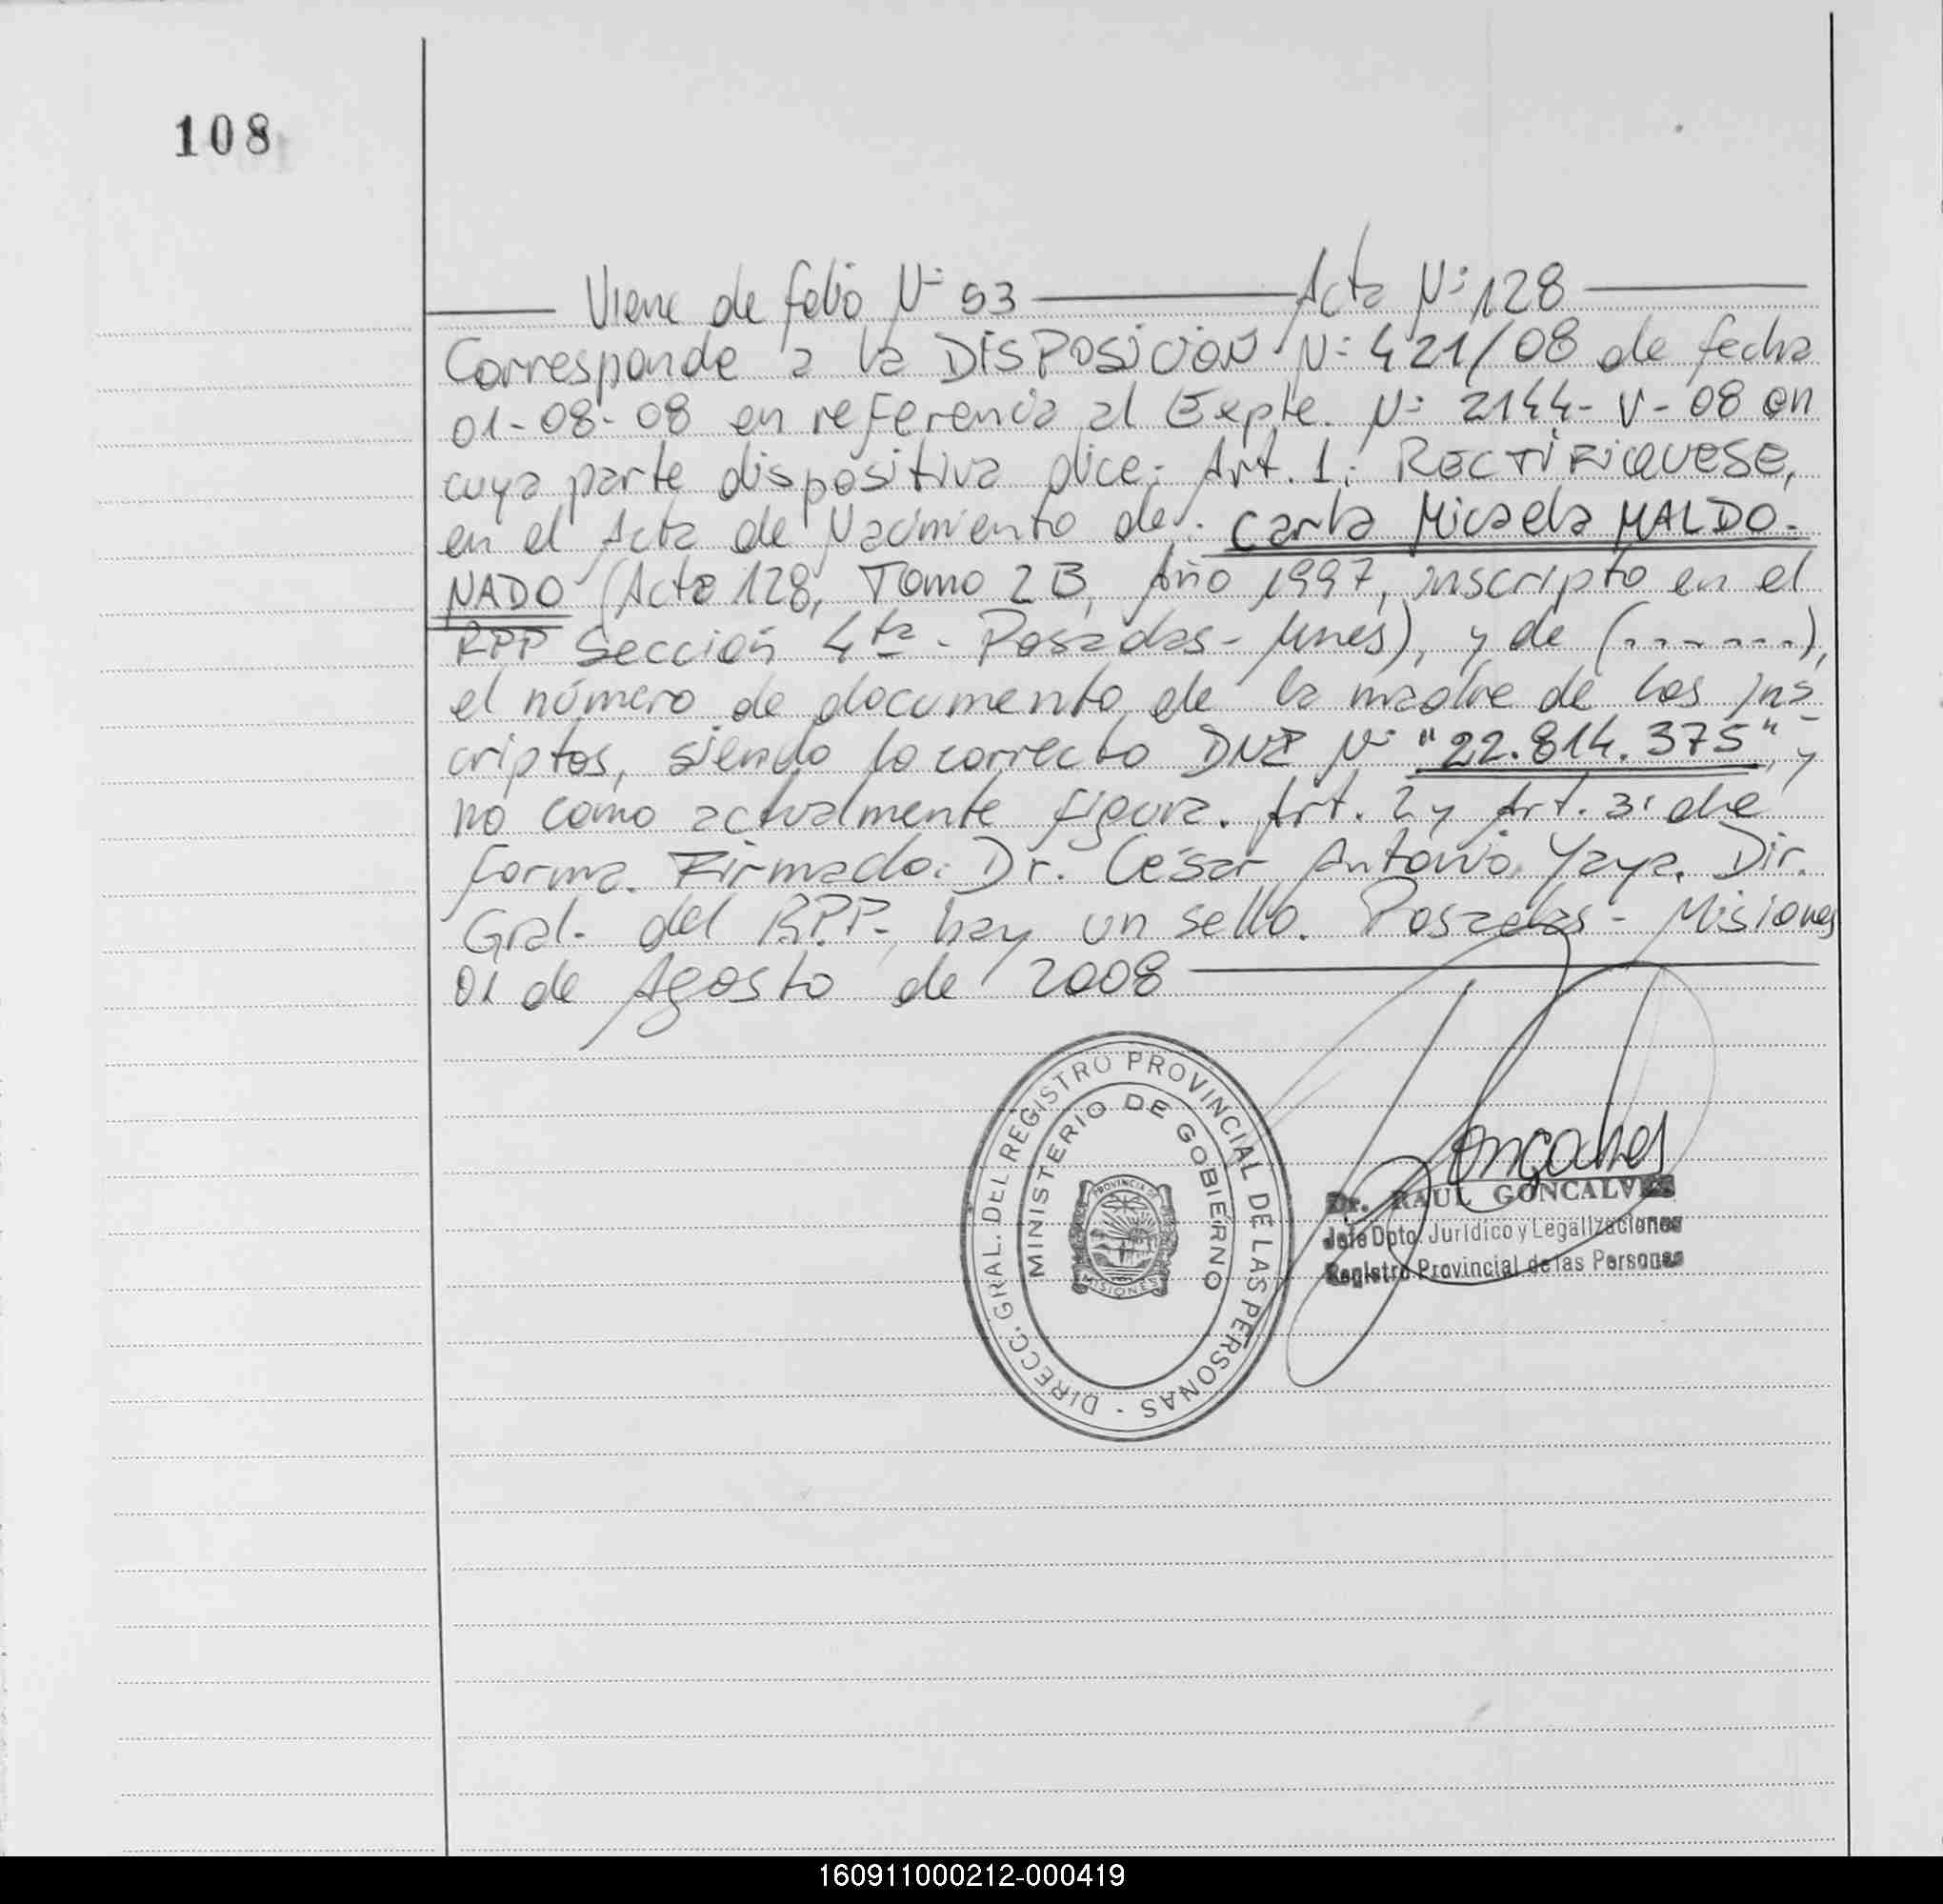 108
Viene de folio Nº 53 Acta Nº 128
Corresponde a la DISPOSICION Nº 421/08 de fecha
01-08-08 en referencia al Expte. Nº 2144-V-08 en
cuya parte dispositiva dice: Art. 1: RECTIFIQUESE,
en el Acta de Nacimiento de: Carla Micaela MALDO-
NADO (Acta 128, Tomo 2B, Año 1997, inscripto en el
RPP Sección 4ta - Posadas - Mnes), y de (.......),
el número de documento de la madre de los ins-
criptos, siendo lo correcto DNI Nº "22.814.375", y
no como actualmente figura. Art. 2 y Art. 3: de
forma. Firmado: Dr. César Antonio Yaya. Dir.
Gral. del R.P.P., hay un sello. Posadas - Misiones
01 de Agosto de 2008
DIRECC. GRAL. DEL REGISTRO PROVINCIAL DE LAS PERSONAS -
MINISTERIO DE GOBIERNO
PROVINCIA DE
MISIONES
Goncalves
Dr. RAUL GONCALVES
Jefe Dpto. Jurídico y Legalizaciones
Registro Provincial de las Personas
160911000212-000419